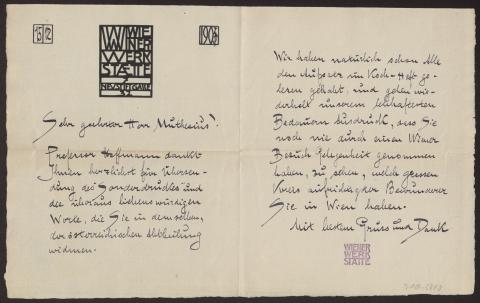 15/2
WIE
NER
WERK
STÄTTE
7
NEUSTIFTGASSE
32
1905
Sehr geehrter Herr Muthesius!
Professor Hoffmann dankt
Ihnen herzlichst für Übersen-
dung des Sonderdruckes und
der überaus liebenswürdigen
Worte, die Sie in demselben,
der österreichischen Abteilung
widmen.
Wir haben natürlich schon Alle
den Aufsatz im Koch-Heft ge-
lesen gehabt, und geben wie-
derholt unserem lebhaftesten
Bedauern Ausdruck, dass Sie
noch nie durch einen Wiener
Besuch Gelegenheit genommen
haben, zu sehen, welch grossen
Kreis aufrichtiger Bewunderer
Sie in Wien haben.
Mit bestem Gruss und Dank
WIENER
WERK
STÄTTE